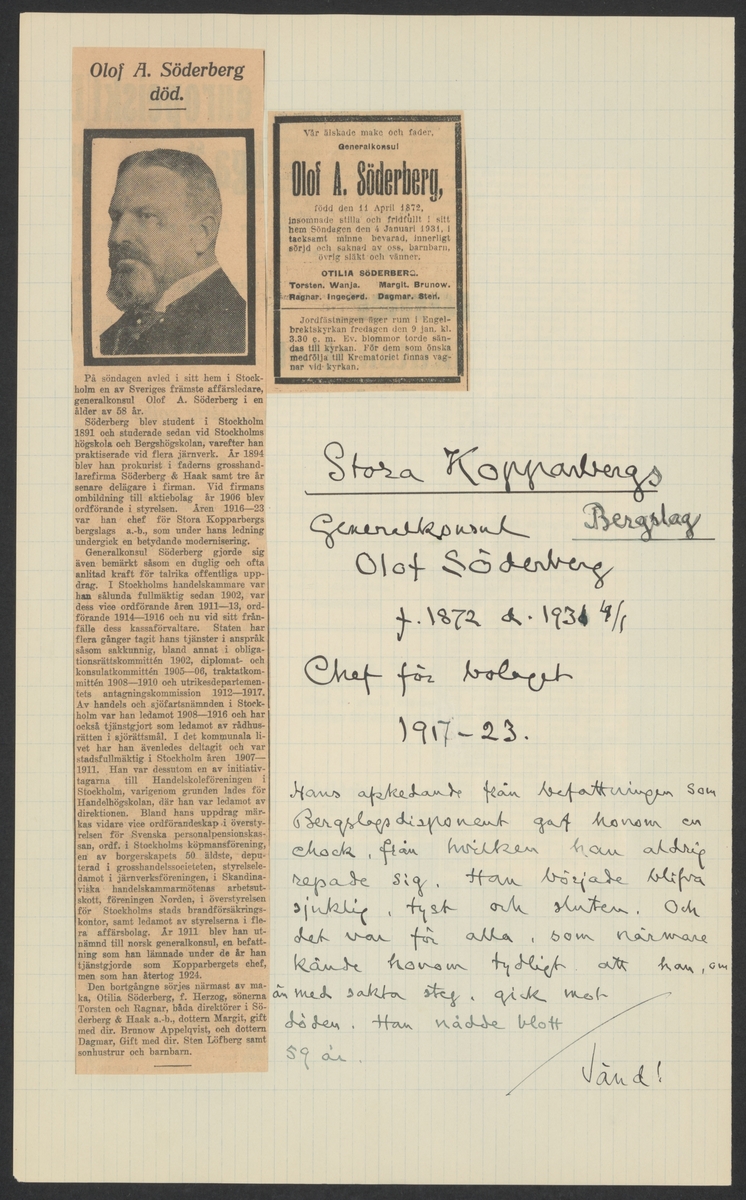 Olof A. Söderberg
död.
På söndagen avled i sitt hem i Stock-
holm en av Sveriges främste affärsledare,
generalkonsul Olof A. Söderberg i en
ålder av 58 år.
Söderberg blev student i Stockholm
1891 och studerade sedan vid Stockholms
högskola och Bergshögskolan, varefter han
praktiserade vid flera järnverk. År 1894
blev han prokurist i faderns grosshand-
larefirma Söderberg & Haak samt tre år
senare delägare i firman. Vid firmans
ombildning till aktiebolag år 1906 blev
ordförande i styrelsen. Åren 1916—23
var han chef för Stora Kopparbergs
bergslags a.-b., som under hans ledning
undergick en betydande modernisering.
Generalkonsul Söderberg gjorde sig
även bemärkt såsom en duglig och ofta
anlitad kraft för talrika offentliga upp-
drag. I Stockholms handelskammare var
han sålunda fullmäktig sedan 1902, var
dess vice ordförande åren 1911—13, ord-
förande 1914—1916 och nu vid sitt från-
fälle dess kassaförvaltare. Staten har
flera gånger tagit hans tjänster i anspråk
såsom sakkunnig, bland annat i obliga-
tionsrättskommittén 1902, diplomat- och
konsulatkommittén 1905—06, traktatkom-
mittén 1908—1910 och utrikesdepartemen-
tets antagningskommission 1912—1917.
Av handels och sjöfartsnämnden i Stock-
holm var han ledamot 1908—1916 och har
också tjänstgjort som ledamot av rådhus-
rätten i sjörättsmål. I det kommunala li-
vet har han ävenledes deltagit och var
stadsfullmäktig i Stockholm åren 1907—
1911. Han var dessutom en av initiativ-
tagarna till Handelskoleföreningen i
Stockholm, varigenom grunden lades för
Handelhögskolan, där han var ledamot av
direktionen. Bland hans uppdrag mär-
kas vidare vice ordförandeskap i översty-
relsen för Svenska personalpensionskas-
san, ordf. i Stockholms köpmansförening,
en av borgerskapets 50 äldste, depu-
terad i grosshandelssocieteten, styrelsele-
damot i järnverksföreningen, i Skandina-
viska handelskammarmötenas arbetsut-
skott, föreningen Norden, i överstyrelsen
för Stockholms stads brandförsäkrings-
kontor, samt ledamot av styrelserna i fle-
ra affärsbolag. År 1911 blev han ut-
nämnd till norsk generalkonsul, en befatt-
ning som han lämnade under de år han
tjänstgjorde som Kopparbergets chef,
men som han återtog 1924.
Den bortgångne sörjes närmast av ma-
ka, Otilia Söderberg, f. Herzog, sönerna
Torsten och Ragnar, båda direktörer i Sö-
derberg & Haak a.-b., dottern Margit, gift
med dir. Brunow Appelqvist, och dottern
Dagmar, Gift med dir. Sten Löfberg samt
sonhustrur och barnbarn.
Vår älskade make och fader,
Generalkonsul
Olof A. Söderberg,
född den 11 April 1872,
insomnade stilla och fridfullt i sitt
hem Söndagen den 4 Januari 1931, i
tacksamt minne bevarad, innerligt
sörjd och saknad av oss, barnbarn,
övrig släkt och vänner.
OTILIA SÖDERBERG.
Torsten. Wanja. Margit. Brunow.
Ragnar. Ingegerd. Dagmar. Sten.
Jordfästningen äger rum i Engel-
brektskyrkan fredagen den 9 jan. kl.
3.30 e. m. Ev. blommor torde sän-
das till kyrkan. För dem som önska
medfölja till Krematoriet finnas vag-
nar vid kyrkan.
Stora Kopparbergs
Bergslag
Generalkonsul
Olof Söderberg
f. 1872 d. 1931 4/1
Chef för bolaget
1917-23.
Hans afskedande från befattningen som
Bergslagsdisponent gaf honom en
chock, från hvilken han aldrig
repade sig. Han började blifva
sjuklig, tyst och sluten. Och
det var för alla, som närmare
kände honom tydligt att han, om
än med sakta steg, gick mot
döden. Han nådde blott
59 år.
Vänd!